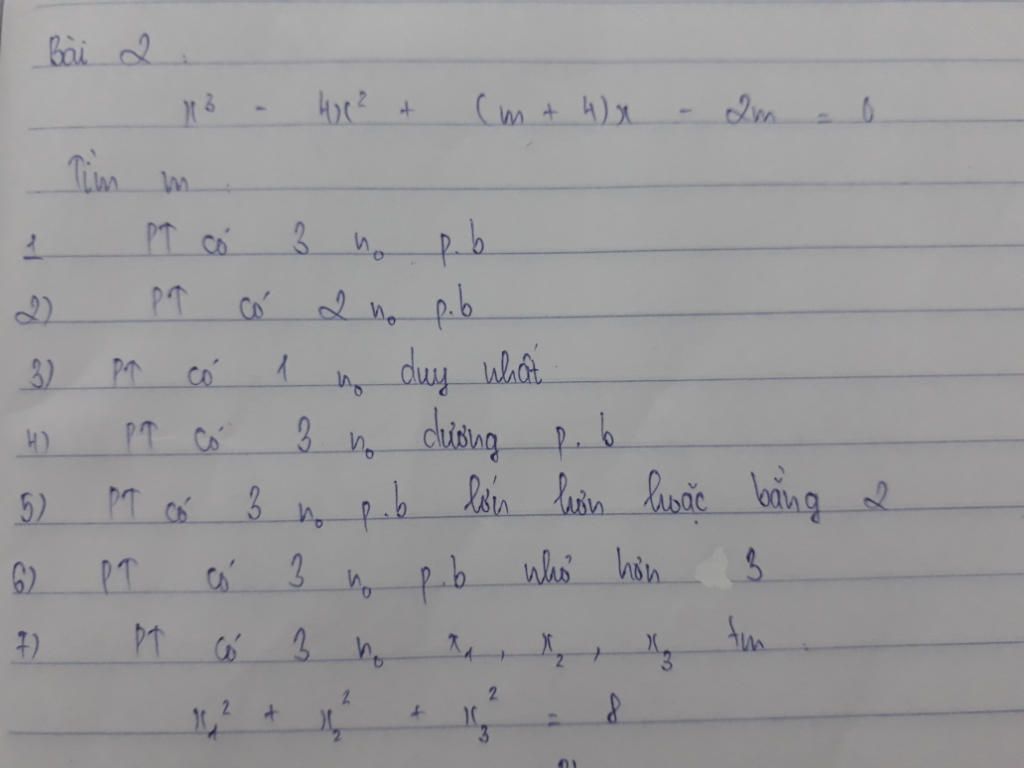 Bài 2 :
x³ - 4x² + (m + 4)x - 2m = 0
Tìm m :
1 PT có 3 n₀ p.b
2) PT có 2 n₀ p.b
3) PT có 1 n₀ duy nhất
4) PT có 3 n₀ dương p.b
5) PT có 3 n₀ p.b lớn hơn hoặc bằng 2
6) PT có 3 n₀ p.b nhỏ hơn 3
7) PT có 3 n₀ x₁, x₂, x₃ tm :
x₁² + x₂² + x₃² = 8